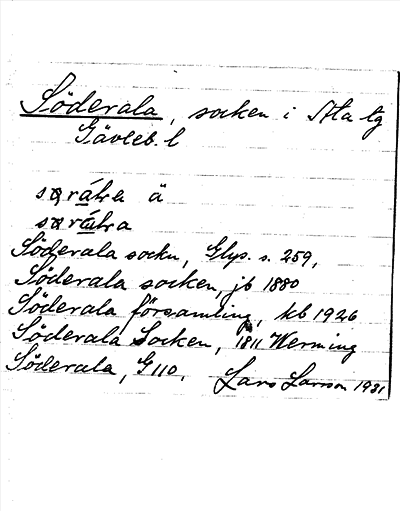 Söderala, socken i Ala tg
Gävleb. l
ä
Söderala sockn, Glp. s. 259,
Söderala socken, jb 1880
Söderala församling, kb 1926
Söderala Socken, 1811 Werming
Söderala, G 110, Lars Larsson 1931